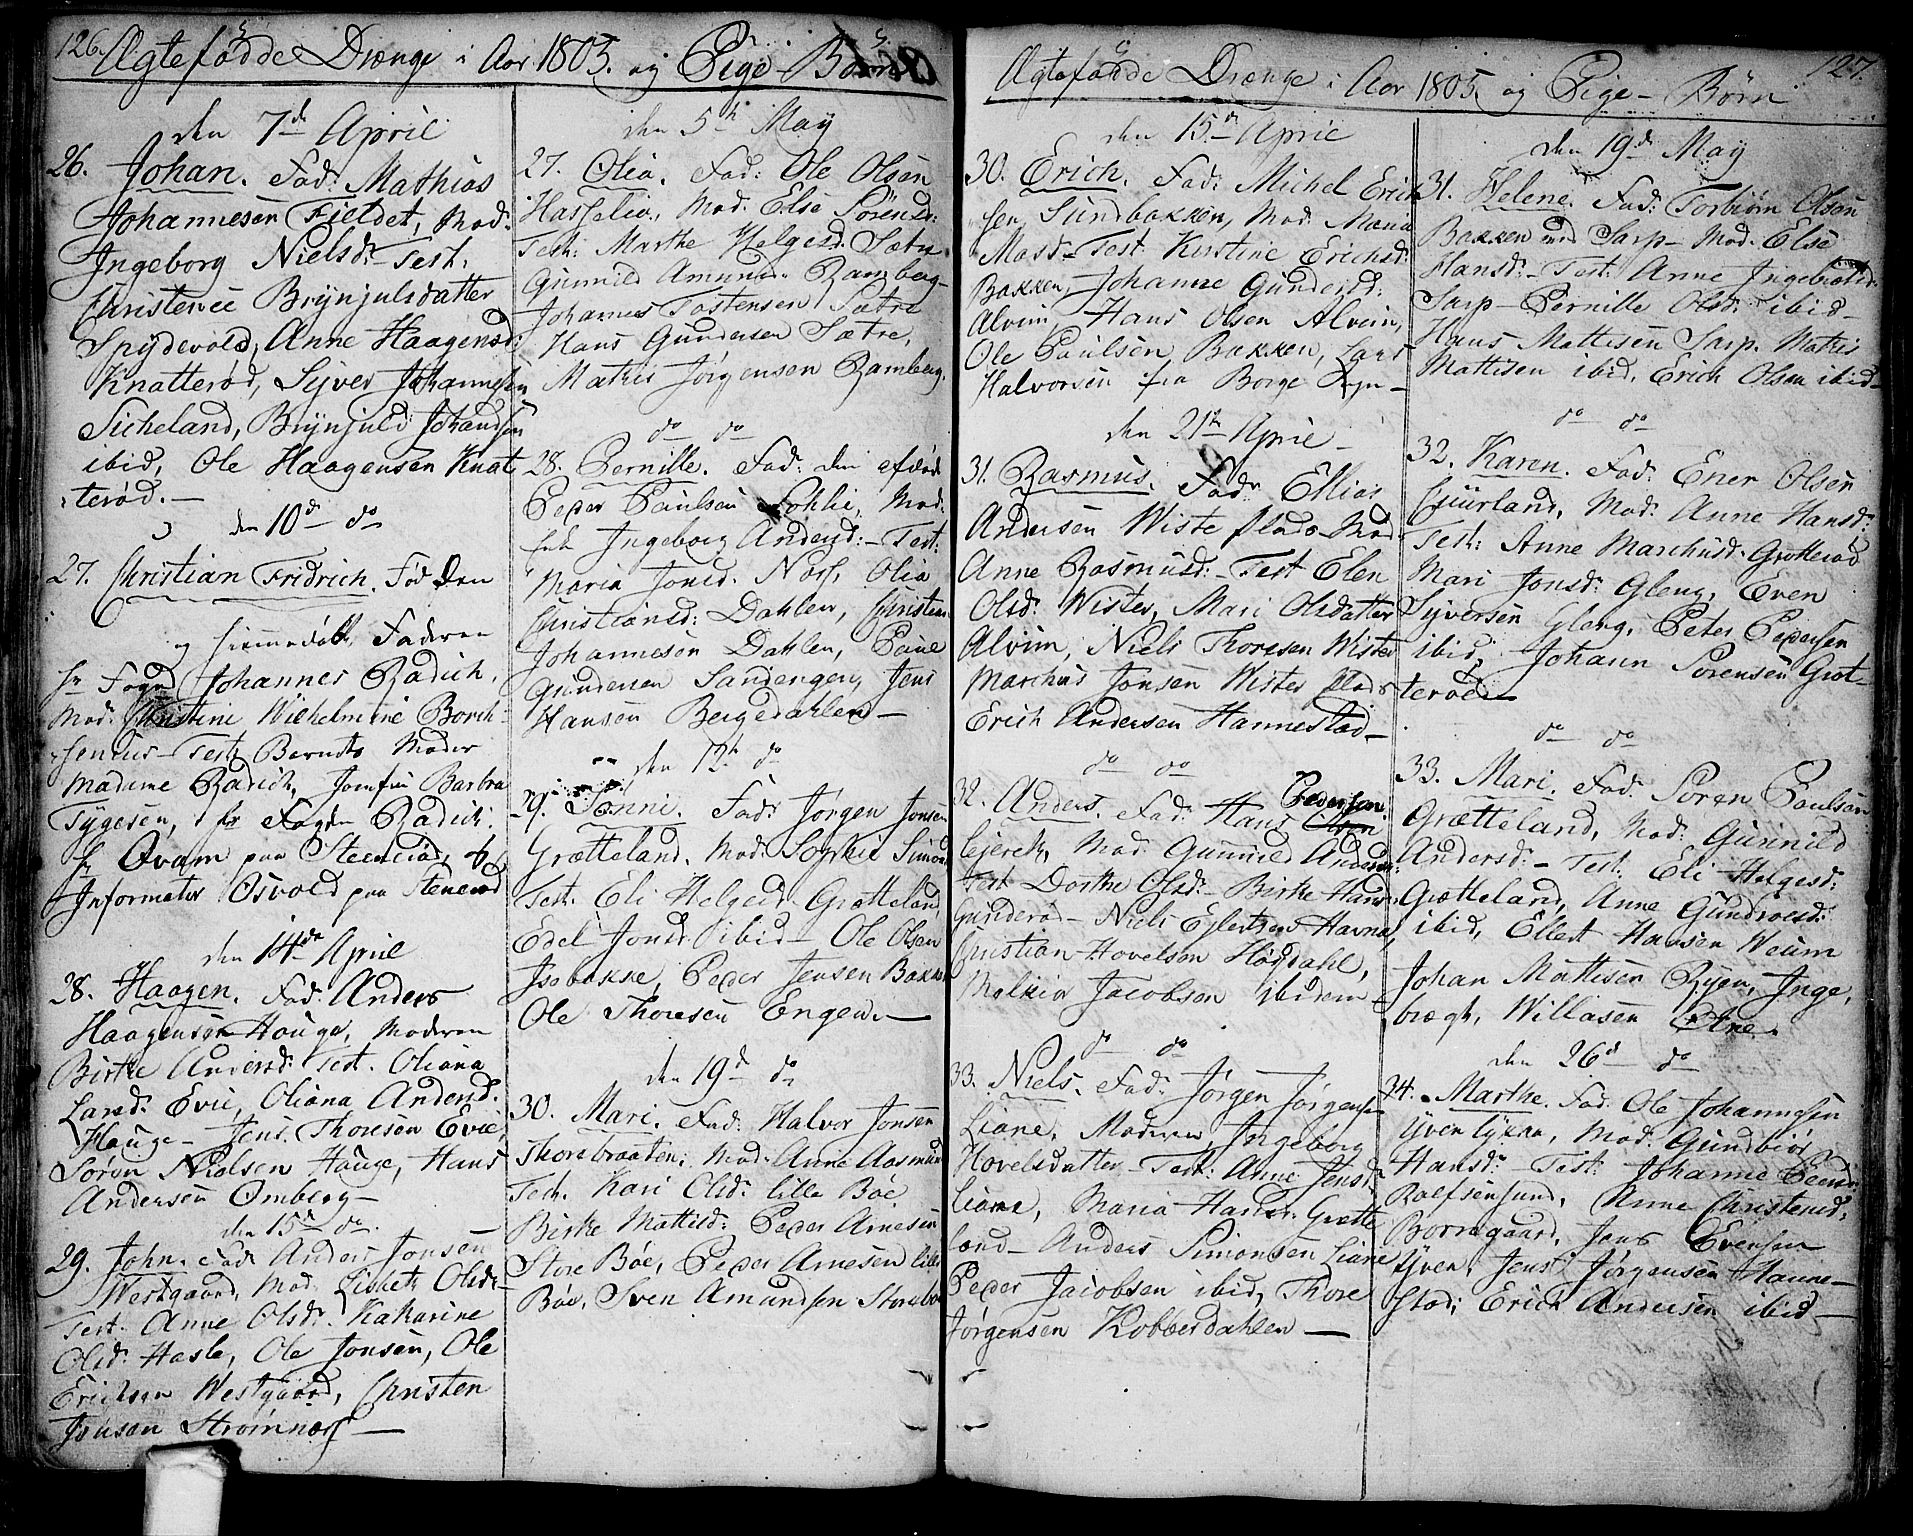 126.
Ægtefødde Drænge i Aar 1805. og Pige - Børn
den 7de April
26. Johan. Fad: Mathias
Johannesen Fieldet, Mod:
Ingeborg Nielsd: Test:
Christence Brynjulsdatter
Spydevold, Anne Haagensd:
Knatterød, Syver Johannesen
Sicheland, Brynjuld Johansen
ibid, Ole Haagensen Knat
terød. —
den 10de do
27. Christian Fridrich. Fød den
og hiemmedøbt, Faderen
hr Fogd Johannes Radich,
Mod: Christine Wilhelmine Borch
senius - Test: Barnets Moder
Madame Radich, Jomfru Barbra
Tygesen, hr Foged Radich,
hr Ovam paa Steenerød, og
Informator Osvold paa Stenerød
den 14de April
28. Haagen. Fad: Anders
Haagensen Houge, Moderen
Birthe Andersd: Test. Oliana
Larsd: Evie, Oliana Andersd.
Houge - Jens Thoresen Evie,
Søren Nielsen Houge, Hans
Andersen Omberg —
den 15de do.
29. John. Fad Anders Jonsen
Westgaard, Mod. Lisbeth Olsd:
Test. Anne Olsd: Katharine
Olsd: Hasle, Ole Jonsen, Ole
Erichsen Westgaard, Christen
Jonsen Strømnæs —
den 5te May
27. Olia. Fad: Ole Olsen
Hasselia, Mod. Else Sørensd:
Test: Marthe Helgesd. Sætre
Gunnild Amunds. Ramberg -
Johannes Tostensen Sætre
Hans Gundersen Sætre,
Mathis Jørgensen Ramberg.
do do
28. Pernille. Fad: den afdøde
Peder Paulsen Lokkie, Mod:
Ingeborg Andersd: - Test:
Maria Jonsd. Nøss, Olia
Christiansd: Dahlen, Christian
Johannesen Dahlen, Paul
Gundersen Sandengen, Jens
Hansen Bergedahlen —
den 12te do
29. Tønni. Fad: Jørgen Jonsen
Grætteland. Mod: Sophie Simons
Test: Eli Helgesd: Grætteland,
Edel Jonsd: ibid - Ole Olsen
Isebakke, Peder Jensen Bakke
Ole Thoresen Engen. —
den 19de do
30. Mari. Fad: Halvor Jonsen
Thorebraaten, Mod: Anne Aasmund
Test. Kari Olsd: lille Bøe
Birthe Mattisd: Peder Arnesen
Store Bøe, Peder Arnesen lille
Bøe, Sven Amundsen Storebøe
127.
Ægtefødde Drænge i Aar 1805. og Pige - Børn
den 15de April
30. Erich. Fad: Michel Erich
sen Sundbakken, Mod: Maria
Mads - Test Kirstine Erichsd:
Bakken, Johanne Gundersd:
Alvim, Hans Olsen Alvim,
Ole Paulsen Bakken, Lars
Halvorsen fra Borge Sogn -
den 21de April -
31. Rasmus. Fad: Ellias
Andersen Wiste Plads Mod:
Anne Rasmusd: - Test Elen
Olsd: Wister, Mari Olsdatter
Alvim, Niels Thoresen Wister
Marchus Jonsen Wister Plads
Erich Andersen Hannestad —
do do
32. Anders. Fad: Hans Pedersen
Lierek, Mod: Gunnild Andersd:
Test Dorthe Olsd: - Birthe Hansd:
Gunderød - Niels Eylertsen Havne,
Christian Hovelsen Høgdahl,
Melkior Jacobsen ibidem —
do do
33. Niels. Fad: Jørgen Jørgensen
Liane, Moderen, Ingeborg
Hovelsdatter - Test: Anne Jensd:
Liane, Maria Hansd: Grætte
land - Anders Simonsen Liane
Peder Jacobsen ibid, Thore
Jørgensen Kobberdahlen —
den 19de May
31. Helene. Fad: Torbiørn Olsen
Bakken und Sarp - Mod. Else
Hansd: - Test: Anne Ingebretsd:
Sarp - Pernille Olsd: ibid -
Hans Mattisen Sarp. Mathis
Mattisen ibid, Erich Olsen ibid -
do do
32. Karen. Fad: Ener Olsen
Giurland, Mod: Anne Hansd:
Test: Anne Marchusd. Grotterød
Mari Jonsd: Gleng, Even
Syversen Gleng, Peter Pedersen
ibid, Johann Sørensen Grot-
terød —
do do
33. Mari. Fad: Søren Paulsen
Grætteland, Mod: Gunnild
Andersd: - Test: Eli Helgesd:
Grætteland, Anne Gundersd:
ibid, Ellert Hansen Weum
Johan Mattisen Ryen, Inge,
brægt, Willasen
den 26de do
34. Marthe. Fad: Ole Johannesen
Yven Eyeren, Mod: Gundbiør
Hansd: - Test: Johanne
Rolfsensund, Anne Christensd:
Borregaard, Jens Evensen
Yven, Jens Jørgensen Hanne-
stad, Erich Andersen ibid —